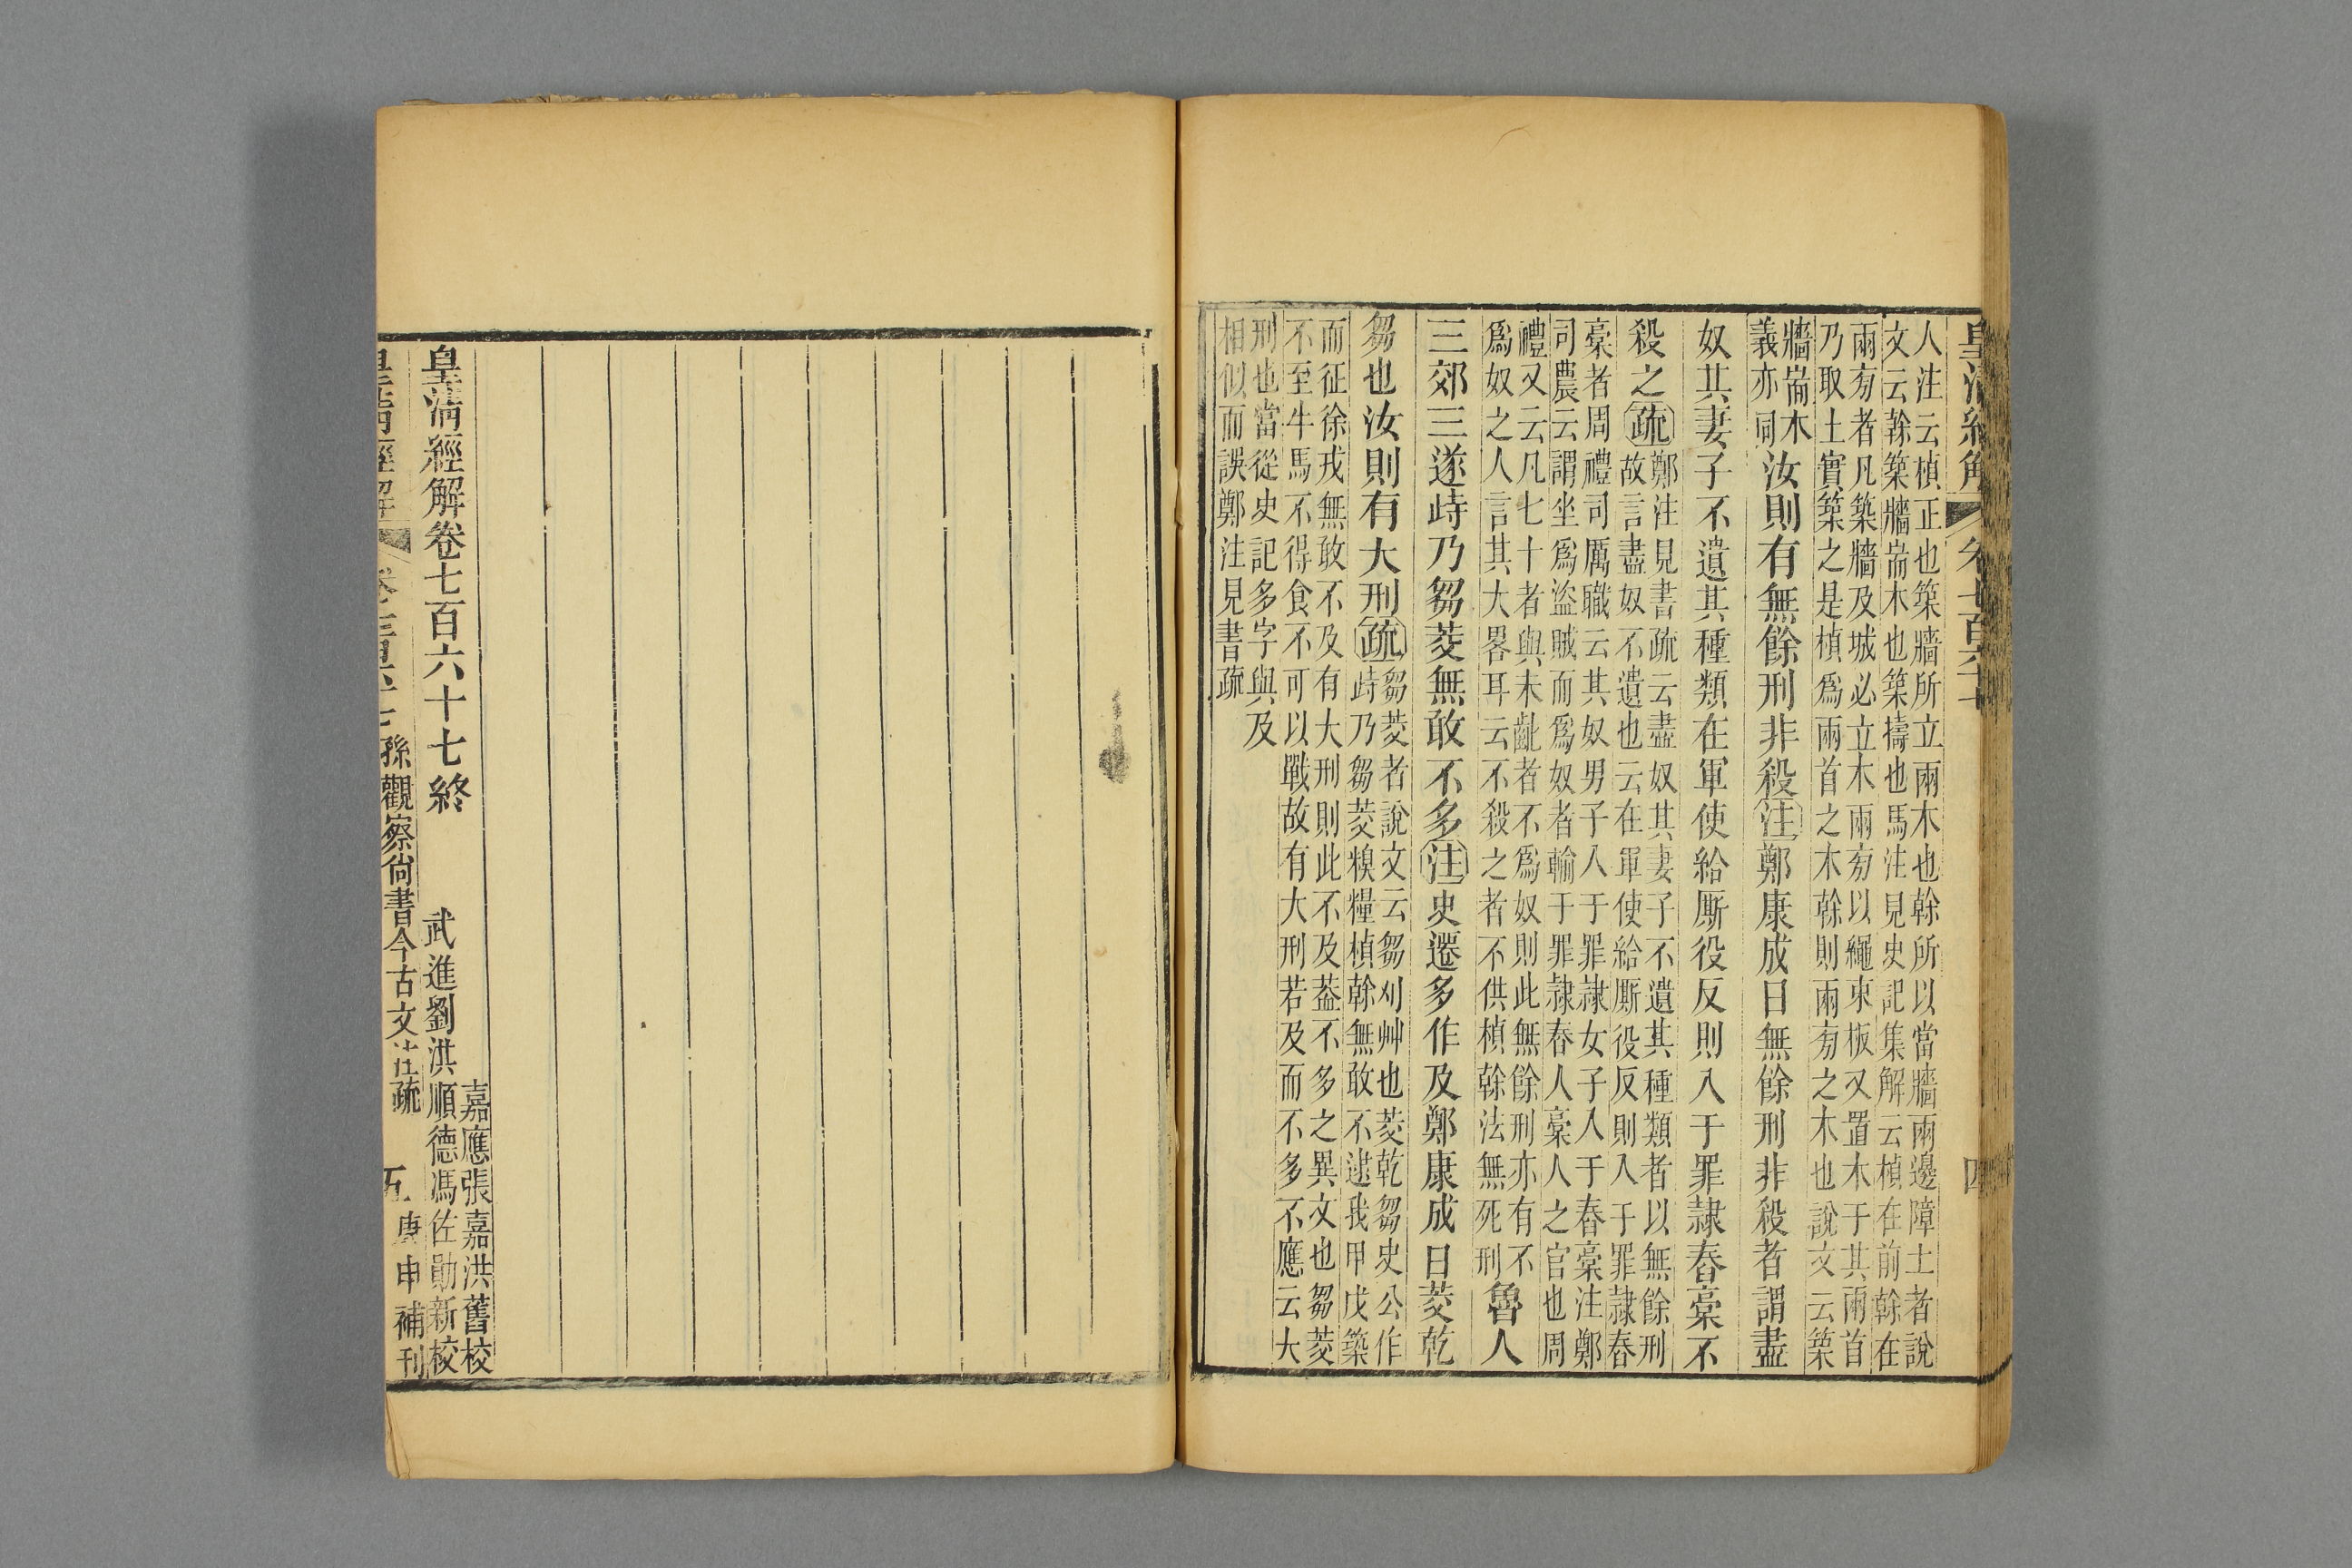 皇清經解
卷七百六十七
四
人注云楨正也築牆所立兩木也榦所以當牆兩邊障土者說
文云榦築牆耑木也築擣也馬注見史記集解云楨在前榦在
兩旁者凡築牆及城必立木兩旁以繩束板又置木于其兩首
乃取土實築之是楨爲兩首之木榦則兩旁之木也說文云築
牆耑木
義亦同
汝則有無餘刑非殺注鄭康成曰無餘刑非殺者謂盡
奴其妻子不遺其種類在軍使給厮役反則入于罪隸舂槀不
殺之疏
鄭注見書疏云盡奴其妻子不遺其種類者以無餘刑
故言盡奴不遺也云在軍使給厮役反則入于罪隸舂
槀者周禮司厲職云其奴男子入于罪隸女子入于舂槀注鄭
司農云謂坐爲盜賊而爲奴者輸于罪隸舂人槀人之官也周
禮又云凡七十者與未齔者不爲奴則此無餘刑亦有不
爲奴之人言其大畧耳云不殺之者不供楨榦法無死刑
魯人
三郊三遂峙乃芻茭無敢不多注史遷多作及鄭康成曰茭乾
芻也汝則有大刑疏
芻茭者說文云芻刈艸也茭乾芻史公作
峙乃芻茭糗糧楨榦無敢不逮我甲戊築
而征徐戎無敢不及有大刑則此不及葢不多之異文也芻茭
不至牛馬不得食不可以戰故有大刑若及而不多不應云大
刑也當從史記多字與及
相似而誤鄭注見書疏
皇清經解卷七百六十七終
嘉應張嘉洪舊校
武進劉洪順德馮佐勛新校
皇清經解
卷七百六十七
孫觀察尙書今古文注疏
五
庚申補刊